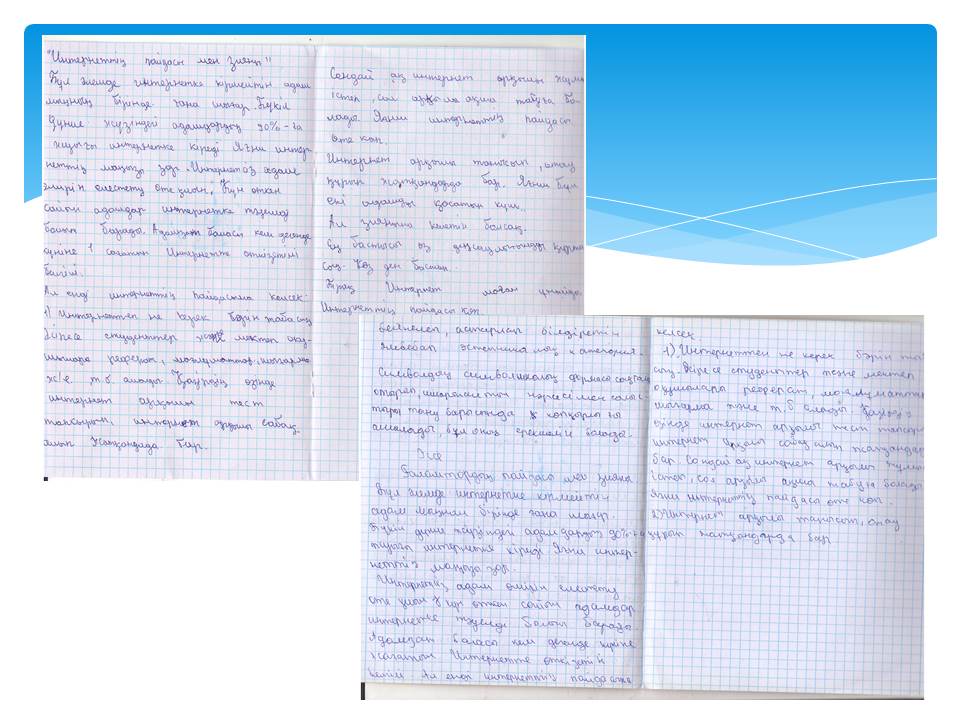 "Интернеттің пайдасы мен зияны"
Бұл әлемде интернетке кірмейтін адам
мыңның бірінде ғана шығар. Бүкіл
Дүние жүзіндегі адамдардың 90%-ға
жуығы интернетке кіреді Яғни интер-
неттің маңызы зор. Интернетсіз адам
өмірін елестету өте қиын, Күн өткен
сайын адамдар интернетке тәуелді
болып барады. Адамзат баласы кем дегенде
күніне 1 сағатын Интернетте өткізетіні
белгілі.
Ал енді интернеттің пайдасына келсек
1) Интернеттен не керек бәрін табасың
Әсіресе студенттер және мектеп оқу-
шылары реферат, мәліметтер, шығарма
т.б. алады. Қазіргің өзінде
интернет арқылы тест
тапсырып, интернет арқылы сабақ
алып жатқандарда бар.
Сондай ақ интернет арқылы жұмыс
істеп, сол арқыла ақша табуға бо-
лады Яғни интернеттің пайдасы
өте көп.
Интернет арқылы танысып, отау
құрып жатқандарда бар. Яғни бұл
екі адамды қосатын күш.
Ал зиянына келетін болсақ.
Ең бастысы өз денсаулығыңды құртып
соң. Көз ден бастап.
Бірақ Интернет
Интернеттің пайдасы көп
бейнелеп, астарлап білдіретін
эстетикалық категория.
Символдың символикалық формасы
отырған нәрсемен салыс-
тыра тану барысында
ашылады, бұл оның ерекшелігі болады.
Эссе
Ғаламтордың пайдасы мен зияны
Бұл әлемде интернетке кірмейтін
адам мыңның бірінде ғана шығар.
Бүкіл дүние жүзіндегі адамдардың 90%-ға
жуығы интернетке кіреді Яғни интер-
неттің маңызы зор.
Интернетсіз адам өмірін елестету
өте қиын Күн өткен сайын адамдар
интернетке тәуелді болып барады
Адамзат баласы кем дегенде күніне
1 сағатын Интернетте өткізетін
Ал енді интернеттің пайдасына
келсек
1) Интернеттен не керек бәрін таба
сың. Әсіресе студенттер және мектеп
оқушылары реферат, мәліметтер
шығарма және т.б алады Қазіргің
өзінде интернет арқылы тест тапсырып
интернет арқылы сабақ алып жатқандар
бар. Сондай ақ интернет арқылы жұмыс
істеп, сол арқылы ақша табуға болады
Яғни интернеттің пайдасы өте көп.
2) Интернет арқылы танысып, отау
құрып жатқандарда бар